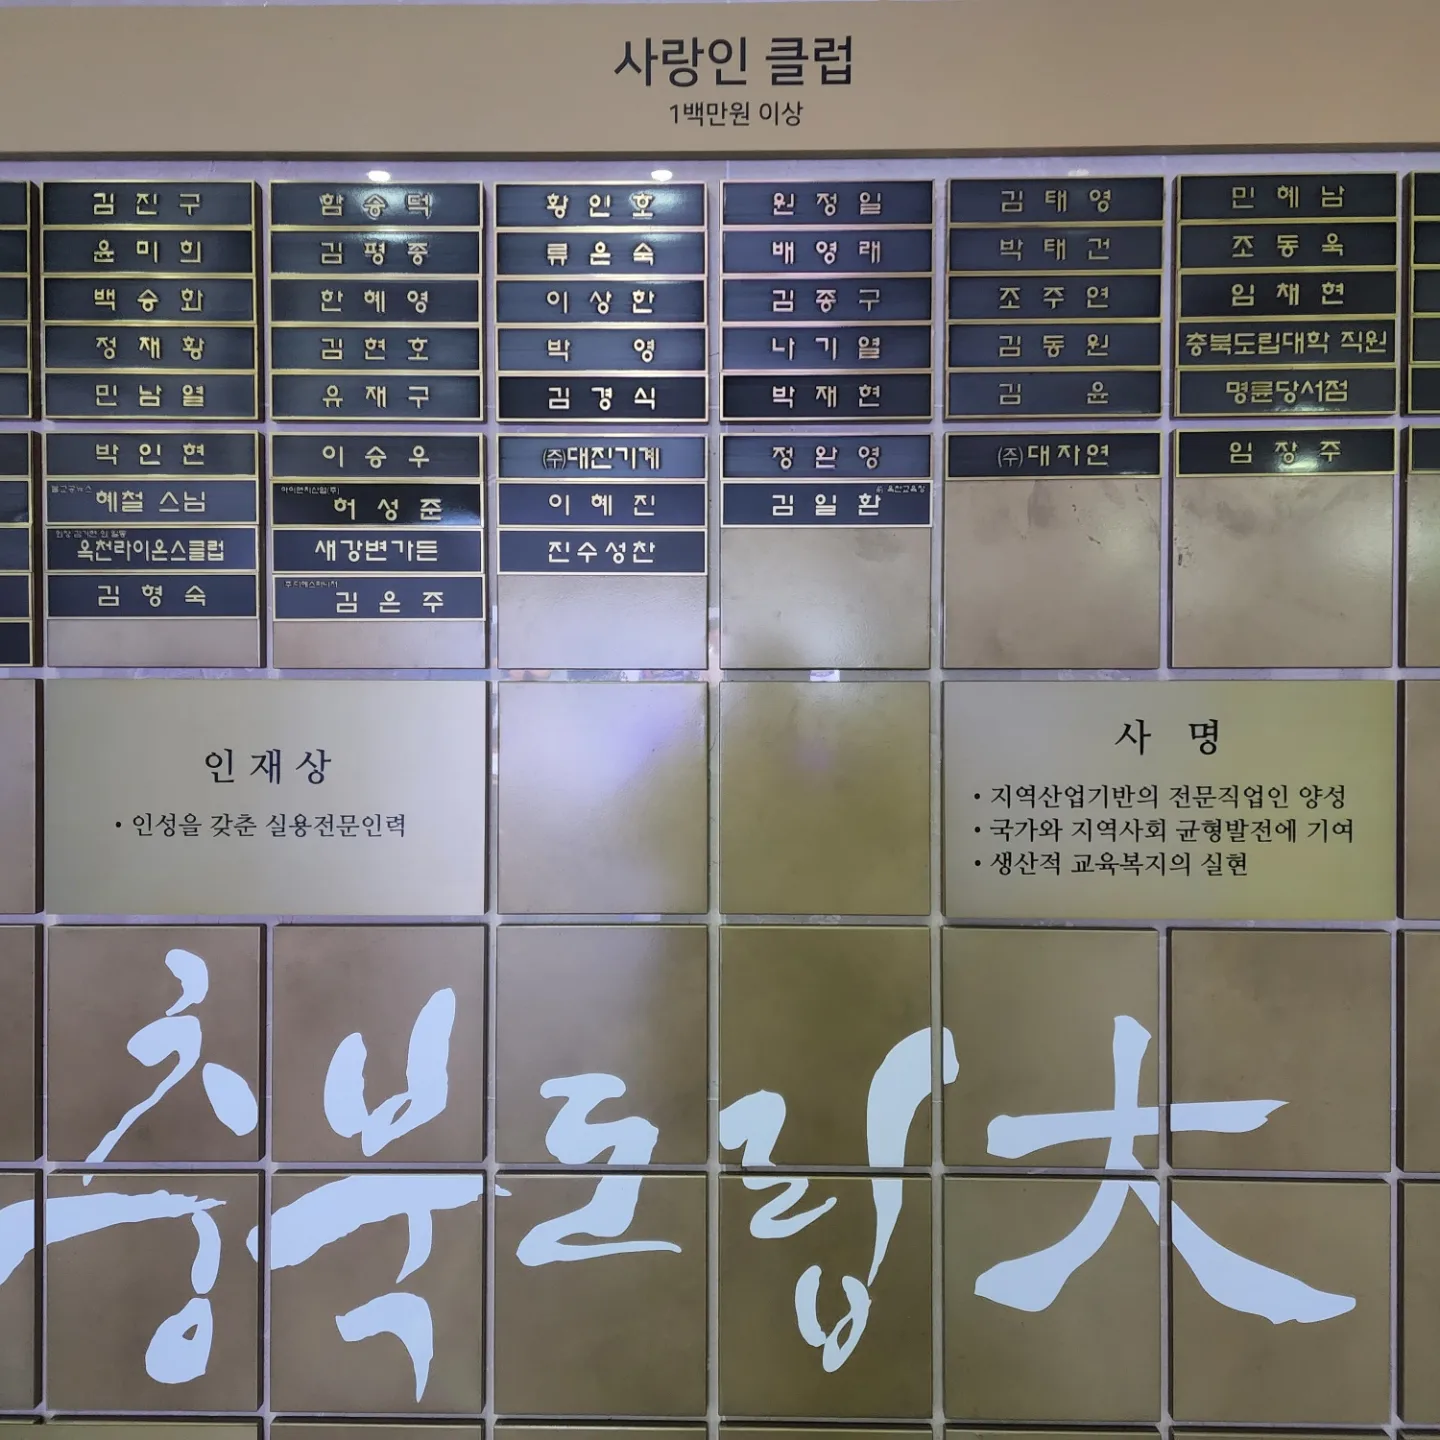 사랑인 클럽
1백만원 이상
김진구
함승덕
황인호
원정일
김태영
민혜남
윤미희
김평중
류은숙
배영래
박태건
조동욱
백승화
한혜영
이상한
김종구
조주연
임채현
정재황
김현호
박영
나기열
김동원
충북도립대학 직원
민남열
유재구
김경식
박재현
김윤
명륜당서점
박인현
이승우
(주)대진기계
정완영
(주)대자연
임장주
불교공뉴스
혜철 스님
허성준
이혜진
김일환
옥천라이온스클럽
새강변가든
진수성찬
김형숙
김은주
인재상
• 인성을 갖춘 실용전문인력
사 명
• 지역산업기반의 전문직업인 양성
• 국가와 지역사회 균형발전에 기여
• 생산적 교육복지의 실현
충북도립大